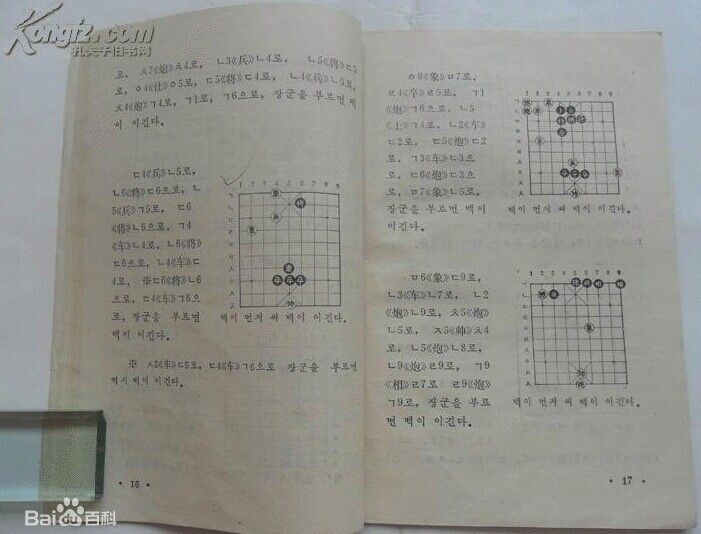 Kongfz.com
孔夫子旧书网
로, ㅊ7《炮》ㅊ4로, ㄴ3《兵》ㄴ4로, ㄴ5《將》ㄷ5
로, ㅇ4《仕》ㅇ5로, ㄷ5《將》ㄷ4로, ㄴ4《兵》ㄴ5로,
ㅊ4《炮》ㄱ4로, ㄱ1로, ㄱ6으로, 장군을 부르면 백
이 이긴다.
ㄷ4《兵》ㄴ5로,
ㄴ6《將》ㄷ6으로, ㄴ
5《兵》ㄱ5로, ㄷ6
《將》ㄴ6으로, ㄱ4
《车》ㄴ4로, ㄴ6《將》
ㄷ6으로, ㄴ4《车》ㄷ
4로, ※ㄷ6《將》ㄴ6
으로, ㄷ4《车》ㄱ6으
로, 장군을 부르면
백이 이긴다.
1 2 3 4 5 6 7 8 9
백이 먼저 써 백이 이긴다.
※ ㅅ5《车》ㄷ5로, ㄷ4《车》ㄱ6으로 장군을 부르면
역시 백이 이긴다.
· 16 ·
ㅇ9《象》ㅁ7로,
ㄹ4《卒》ㄹ5로, ㄱ1
《炮》ㄱ6으로, ㄴ5
《士》ㄱ4로, ㄴ2《车》
ㄷ2로, ㄷ5《炮》ㄷ2
로, ㄱ3《车》ㄷ3으
로, ㄷ6《炮》ㄷ3으
로, ㅁ7《象》ㄴ5로,
장군을 부르면 백이
이긴다.
1 2 3 4 5 6 7 8 9
백이 먼저 써 백이 이긴다.
ㅁ6《象》ㄷ9로,
ㄴ3《车》ㄴ7로, ㄴ2
《炮》ㄴ9로, ㅈ5《炮》
ㄴ5로, ㅈ5《帅》ㅊ4
로, ㄴ5《炮》ㄴ8로,
ㄴ9《炮》ㄹ9로, ㄱ9
《相》ㄹ7로 ㄹ9《炮》
ㄱ9로, 장군을 부르
면 백이 이긴다.
1 2 3 4 5 6 7 8 9
백이 먼저 써 백이 이긴다.
· 17 ·
Baidu百科